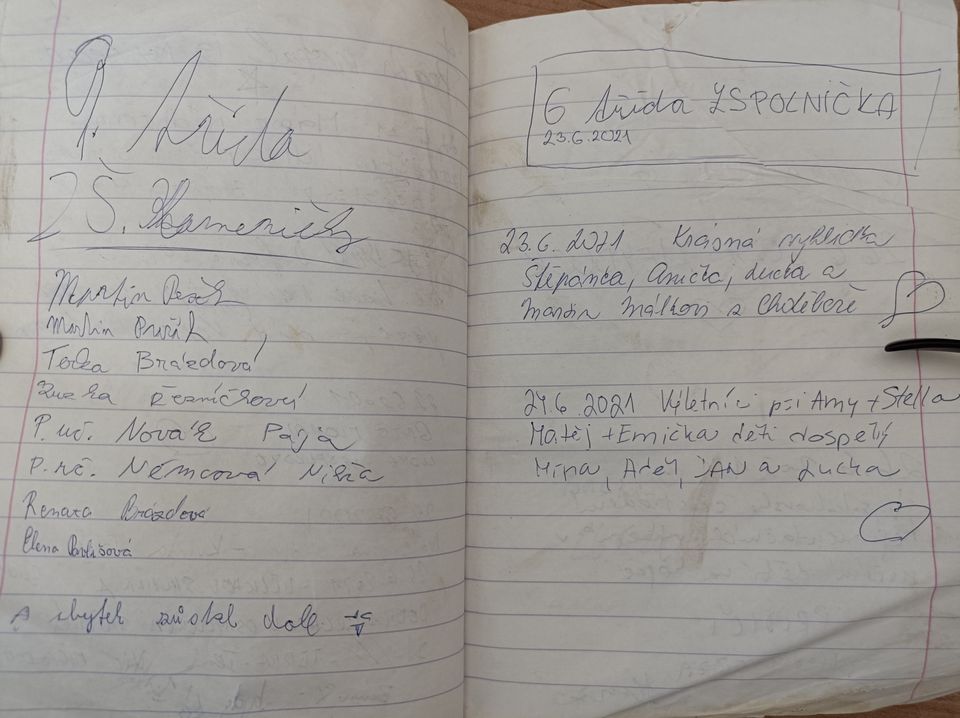 9. třída
ZŠ. Kameničky
Martin
Martin
Terka Brázdová
Zuzka Řezníčková
P. uč. Novák Pája
P. uč. Němcová Niki
Renata Brázdová
Elena Pavlišová
A zbytek zůstal dole
6 třída ZSPOLNIČKA
23.6.2021
23.6.2021 Krásná vyhlídka
Štěpánka, Anička, Lucka a
Martin Málkovi z Chotěboře
24.6.2021 Výletníci psi Amy + Stella
Matěj + Emička děti dospělý
Mína, Adél, JAN a Lucka